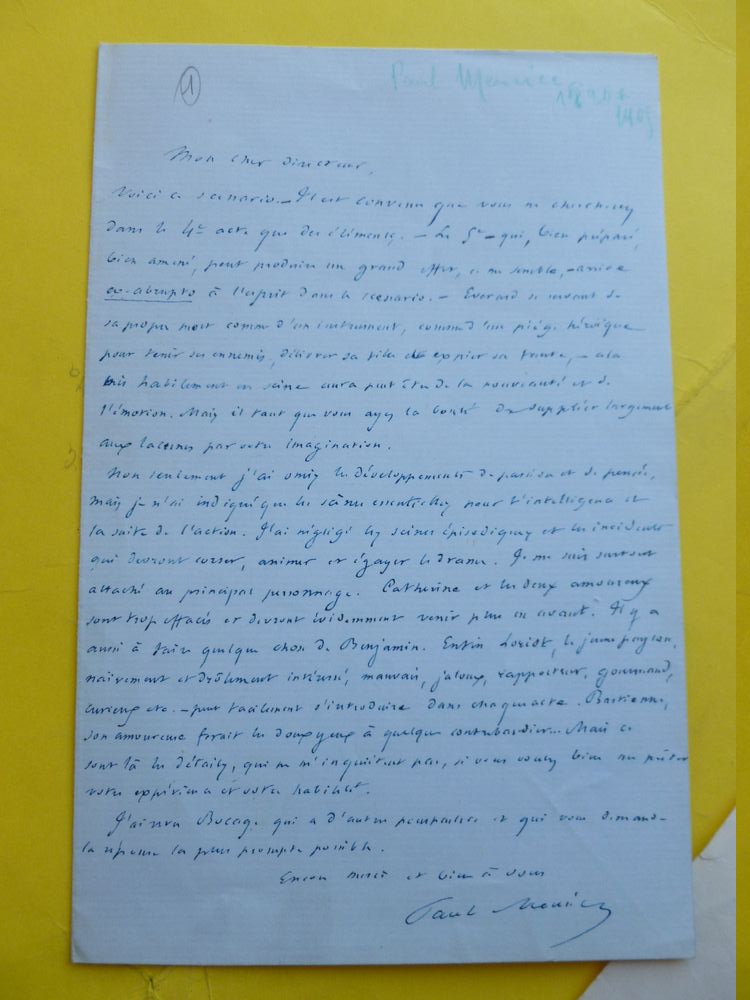 1
Paul Meurice
Mon cher Directeur,
Voici ce scenario. — Il est convenu que vous ne cherchiez
dans le 4e acte que des éléments. — Le 5e — qui, bien préparé,
bien amené, peut produire un grand effet, ce me semble, — arrive
ex-abrupto à l'esprit dans le scenario. — Everard se servant de
sa propre mort comme d'un instrument, comme d'un piège héroïque
pour tenir ses ennemis, délivrer sa fille et expier sa faute, — cela
mis habilement en scène aura peut être de la nouveauté et de
l'émotion. Mais il faut que vous ayez la bonté de suppléer largement
aux lacunes par votre imagination.
Non seulement j'ai omis les développements de passion et de pensée,
mais je n'ai indiqué que les scènes essentielles pour l'intelligence et
la suite de l'action. J'ai négligé les scènes épisodiques et les incidents
qui devront corser, animer et égayer le drame. Je me suis surtout
attaché au principal personnage. Catherine et les deux amoureux
sont trop effacés et devront évidemment venir plus en avant. Il y a
aussi à faire quelque chose de Benjamin. Enfin Loriot, le jeune paysan,
naïvement et drôlement intéressé, mauvais, jaloux, rapporteur, gourmand,
curieux etc. — peut facilement s'introduire dans chaque acte. Bastienne,
son amoureuse ferait les doux yeux à quelque contrebandier... Mais ce
sont là les détails, qui ne m'inquiètent pas, si vous voulez bien me prêter
votre expérience et votre habileté.
J'ai revu Bocage qui a d'autres pourparlers et qui vous demande
la réponse la plus prompte possible.
Encore merci et bien à vous
Paul Meurice